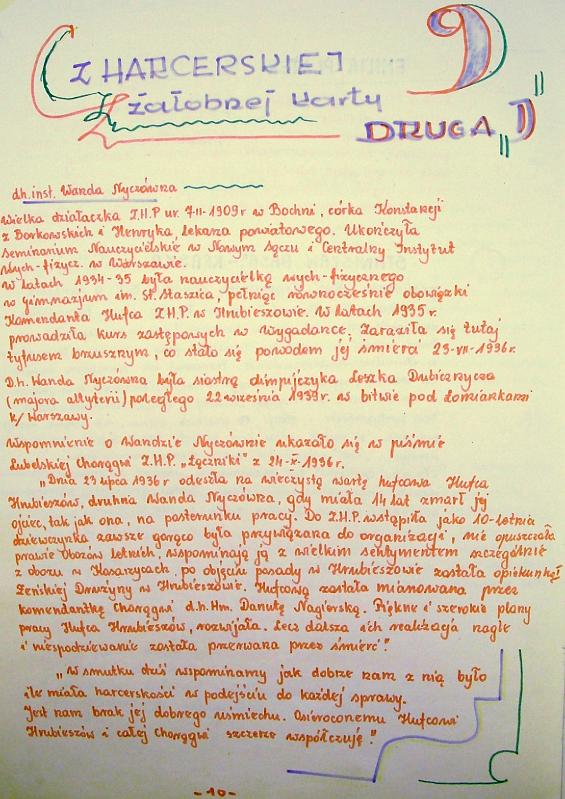 Z HARCERSKIEJ
żałobnej karty
DRUGA
dh. inst. Wanda Nyczówna
Wielka działaczka Z.H.P ur. 7-II-1909 r w Bochni, córka Konstancji
z Borkowskich i Henryka, lekarza powiatowego. Ukończyła
Seminarium Nauczycielskie w Nowym Sączu i Centralny Instytut
Wych-fizycz. w Warszawie.
W latach 1934-35 była nauczycielką wych-fizycznego
w Gimnazjum im. St. Staszica, pełniąc równocześnie obowiązki
Komendanta Hufca Z.H.P. w Hrubieszowie. W latach 1935 r.
prowadziła kurs zastępowych w Wygadance. Zaraziła się tutaj
tyfusem brzusznym, co stało się powodem jej śmierci 23-VII-1936 r.
D.h. Wanda Nyczówna była siostrą olimpijczyka Leszka Lubicznycza
(majora altylerii) poległego 22 września 1939 r. w bitwie pod Łomiankami
k/Warszawy.
Wspomnienie o Wandzie Nyczównie ukazało się w piśmie
Lubelskiej Chorągwi Z.H.P. „Łączniki" z 24-X-1936 r.
„Dnia 23 lipca 1936 r odeszła na wieczystą wartę hufcowa Hufca
Hrubieszów, druhna Wanda Nyczówna, gdy miała 14 lat zmarł jej
ojciec, tak jak ona, na posterunku pracy. Do Z.H.P. wstąpiła jako 10-letnia
dziewczynka zawsze gorąco była przywiązana do organizacji, nie opuszczała
prawie obozów letnich, wspominają ją z wielkim sentymentem szczególnie
z obozu w Kosarzycach, po objęciu posady w Hrubieszowie została opiekunką
Żeńskiej Drużyny w Hrubieszowie. Hufcową została mianowana przez
komendantkę Chorągwi d.h. Hm. Danutę Nagierską. Piękne i szerokie plany
pracy Hufca Hrubieszów, rozwijała. Lecz dalsza ich realizacja nagle
i niespodziewanie została przerwana przez śmierć."
„W smutku dziś wspominamy jak dobrze nam z nią było
ile miała harcerskości w podejściu do każdej sprawy.
Jest nam brak jej dobrego uśmiechu. Osieroconemu Hufcowi
Hrubieszów i całej Chorągwi szczerze współczuję."
-10-